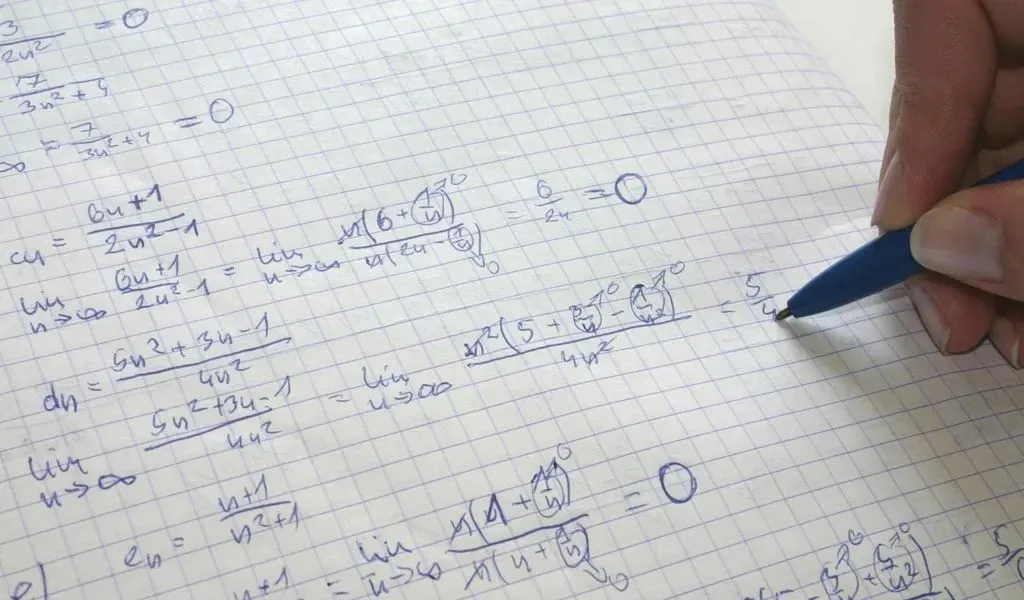 3/2n² = 0
7/3n² + 4
∞ = 7/3n² + 4 = 0
cn = 6n+1/2n²-1
lim n→∞ 6n+1/2n²-1 = lim n→∞ n(6 + (1/n)→0)/n(2n - (1/n)→0) = 6/2n = 0
dn = 5n² + 3n - 1/4n²
lim n→∞ 5n² + 3n - 1/4n² = lim n→∞ n²(5 + (3/n)→0 - (1/n²)→0)/4n² = 5/4
en = n+1/n²+1
e) n+1 = lim n→∞ n(1 + (1/n)→0)/n(n + (1/n)→0) = 0